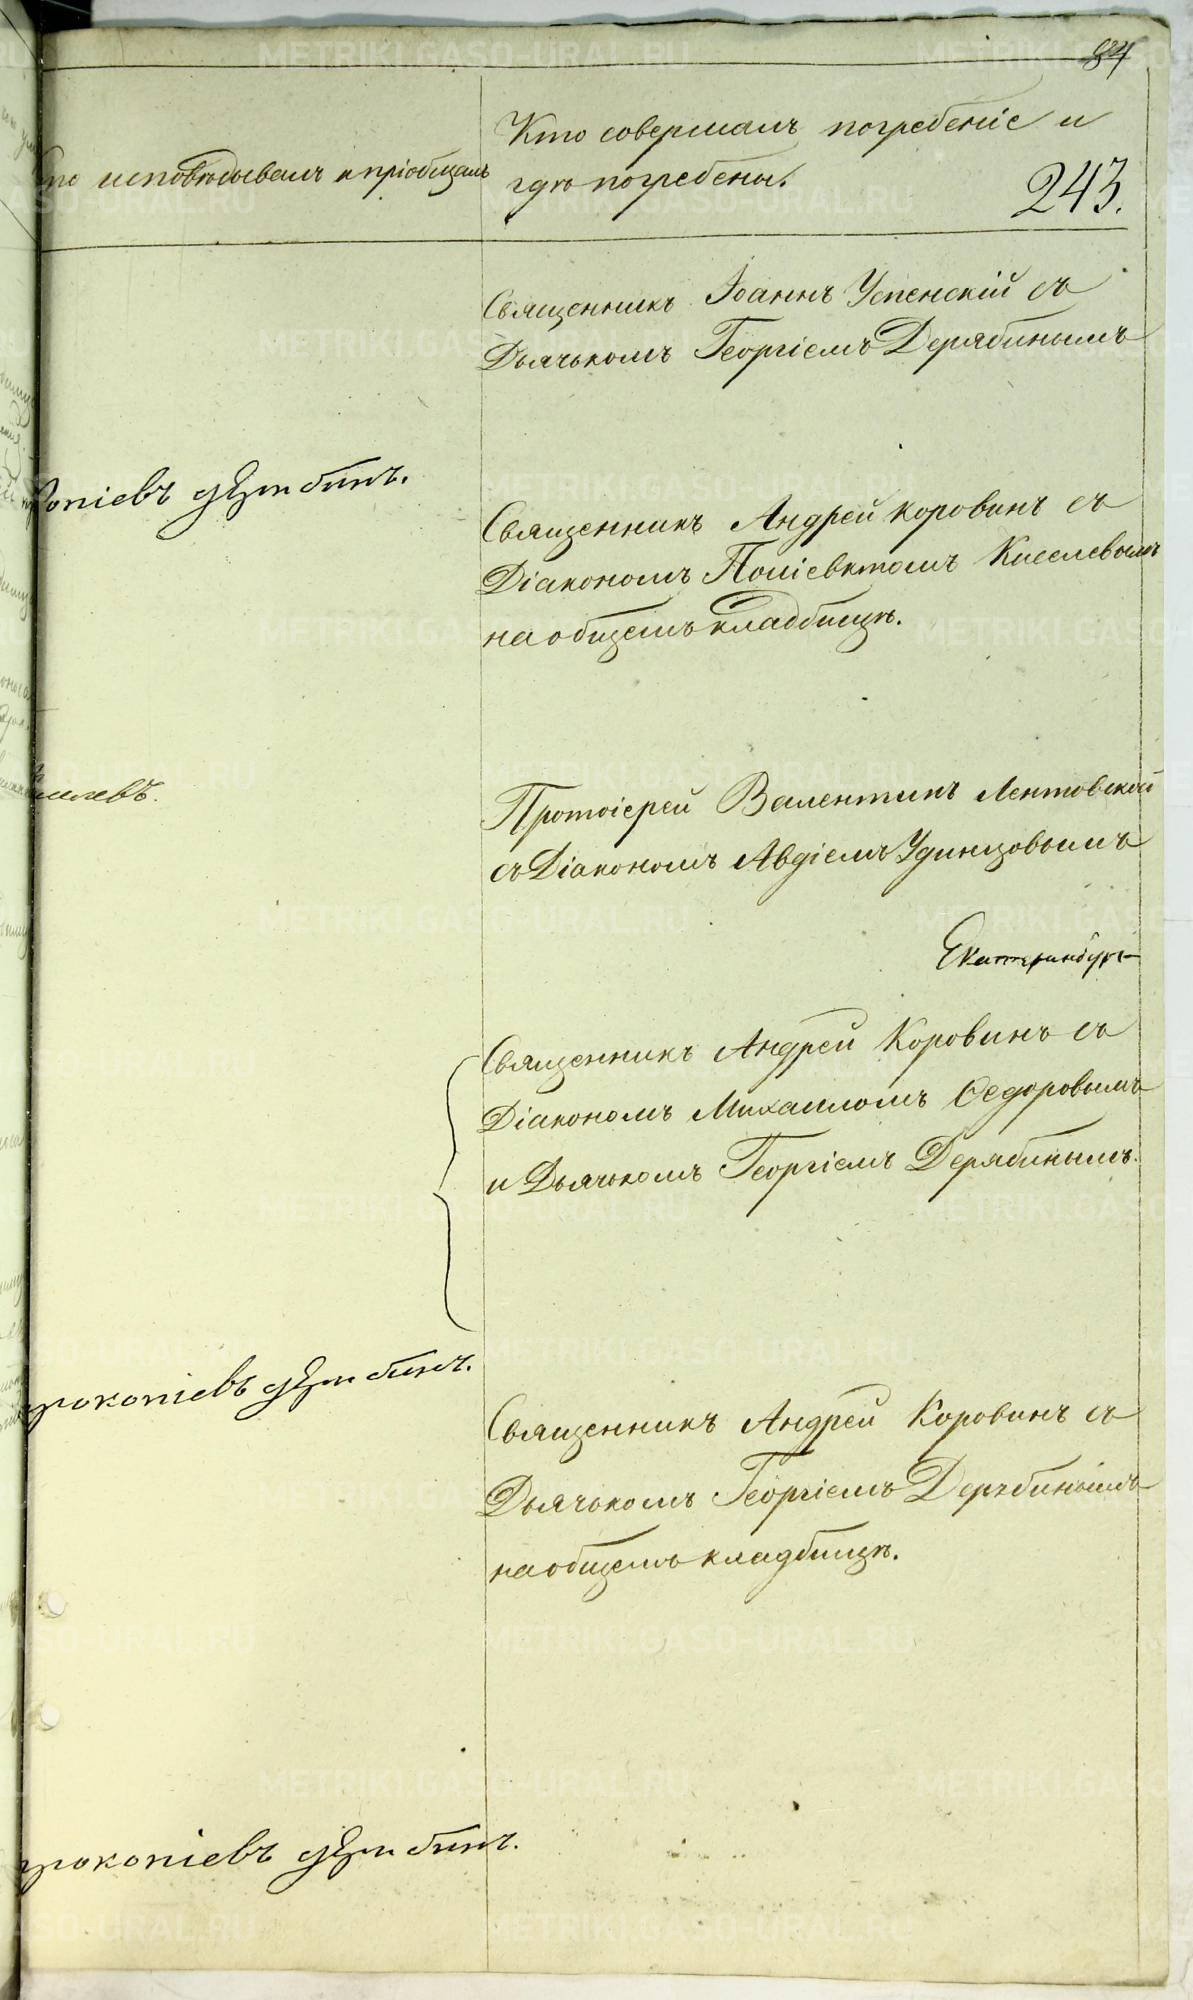 84
Кто совершалъ погребеніе и
исповѣдывалъ и пріобщалъ
гдѣ погребены.
243.
Священникъ Іоаннъ Успенскій съ
Дьячькомъ Георгіемъ Дерябинымъ
Священникъ Андрей Коровинъ съ
Діакономъ Поліевктомъ Киселевымъ
на общемъ кладбищѣ.
Протоіерей Валентинъ Лентовской
съ Діакономъ Авдіемъ Удинцовымъ
Екатеринбург
Священникъ Андрей Коровинъ съ
Діакономъ Михаиломъ Ѳедоровымъ
и Дьячькомъ Георгіемъ Дерябинымъ.
прокопіевъ
Священникъ Андрей Коровинъ съ
Дьячькомъ Георгіемъ Дерябинымъ
на общемъ кладбищѣ.
прокопіевъ
METRIKI.GASO-URAL.RU